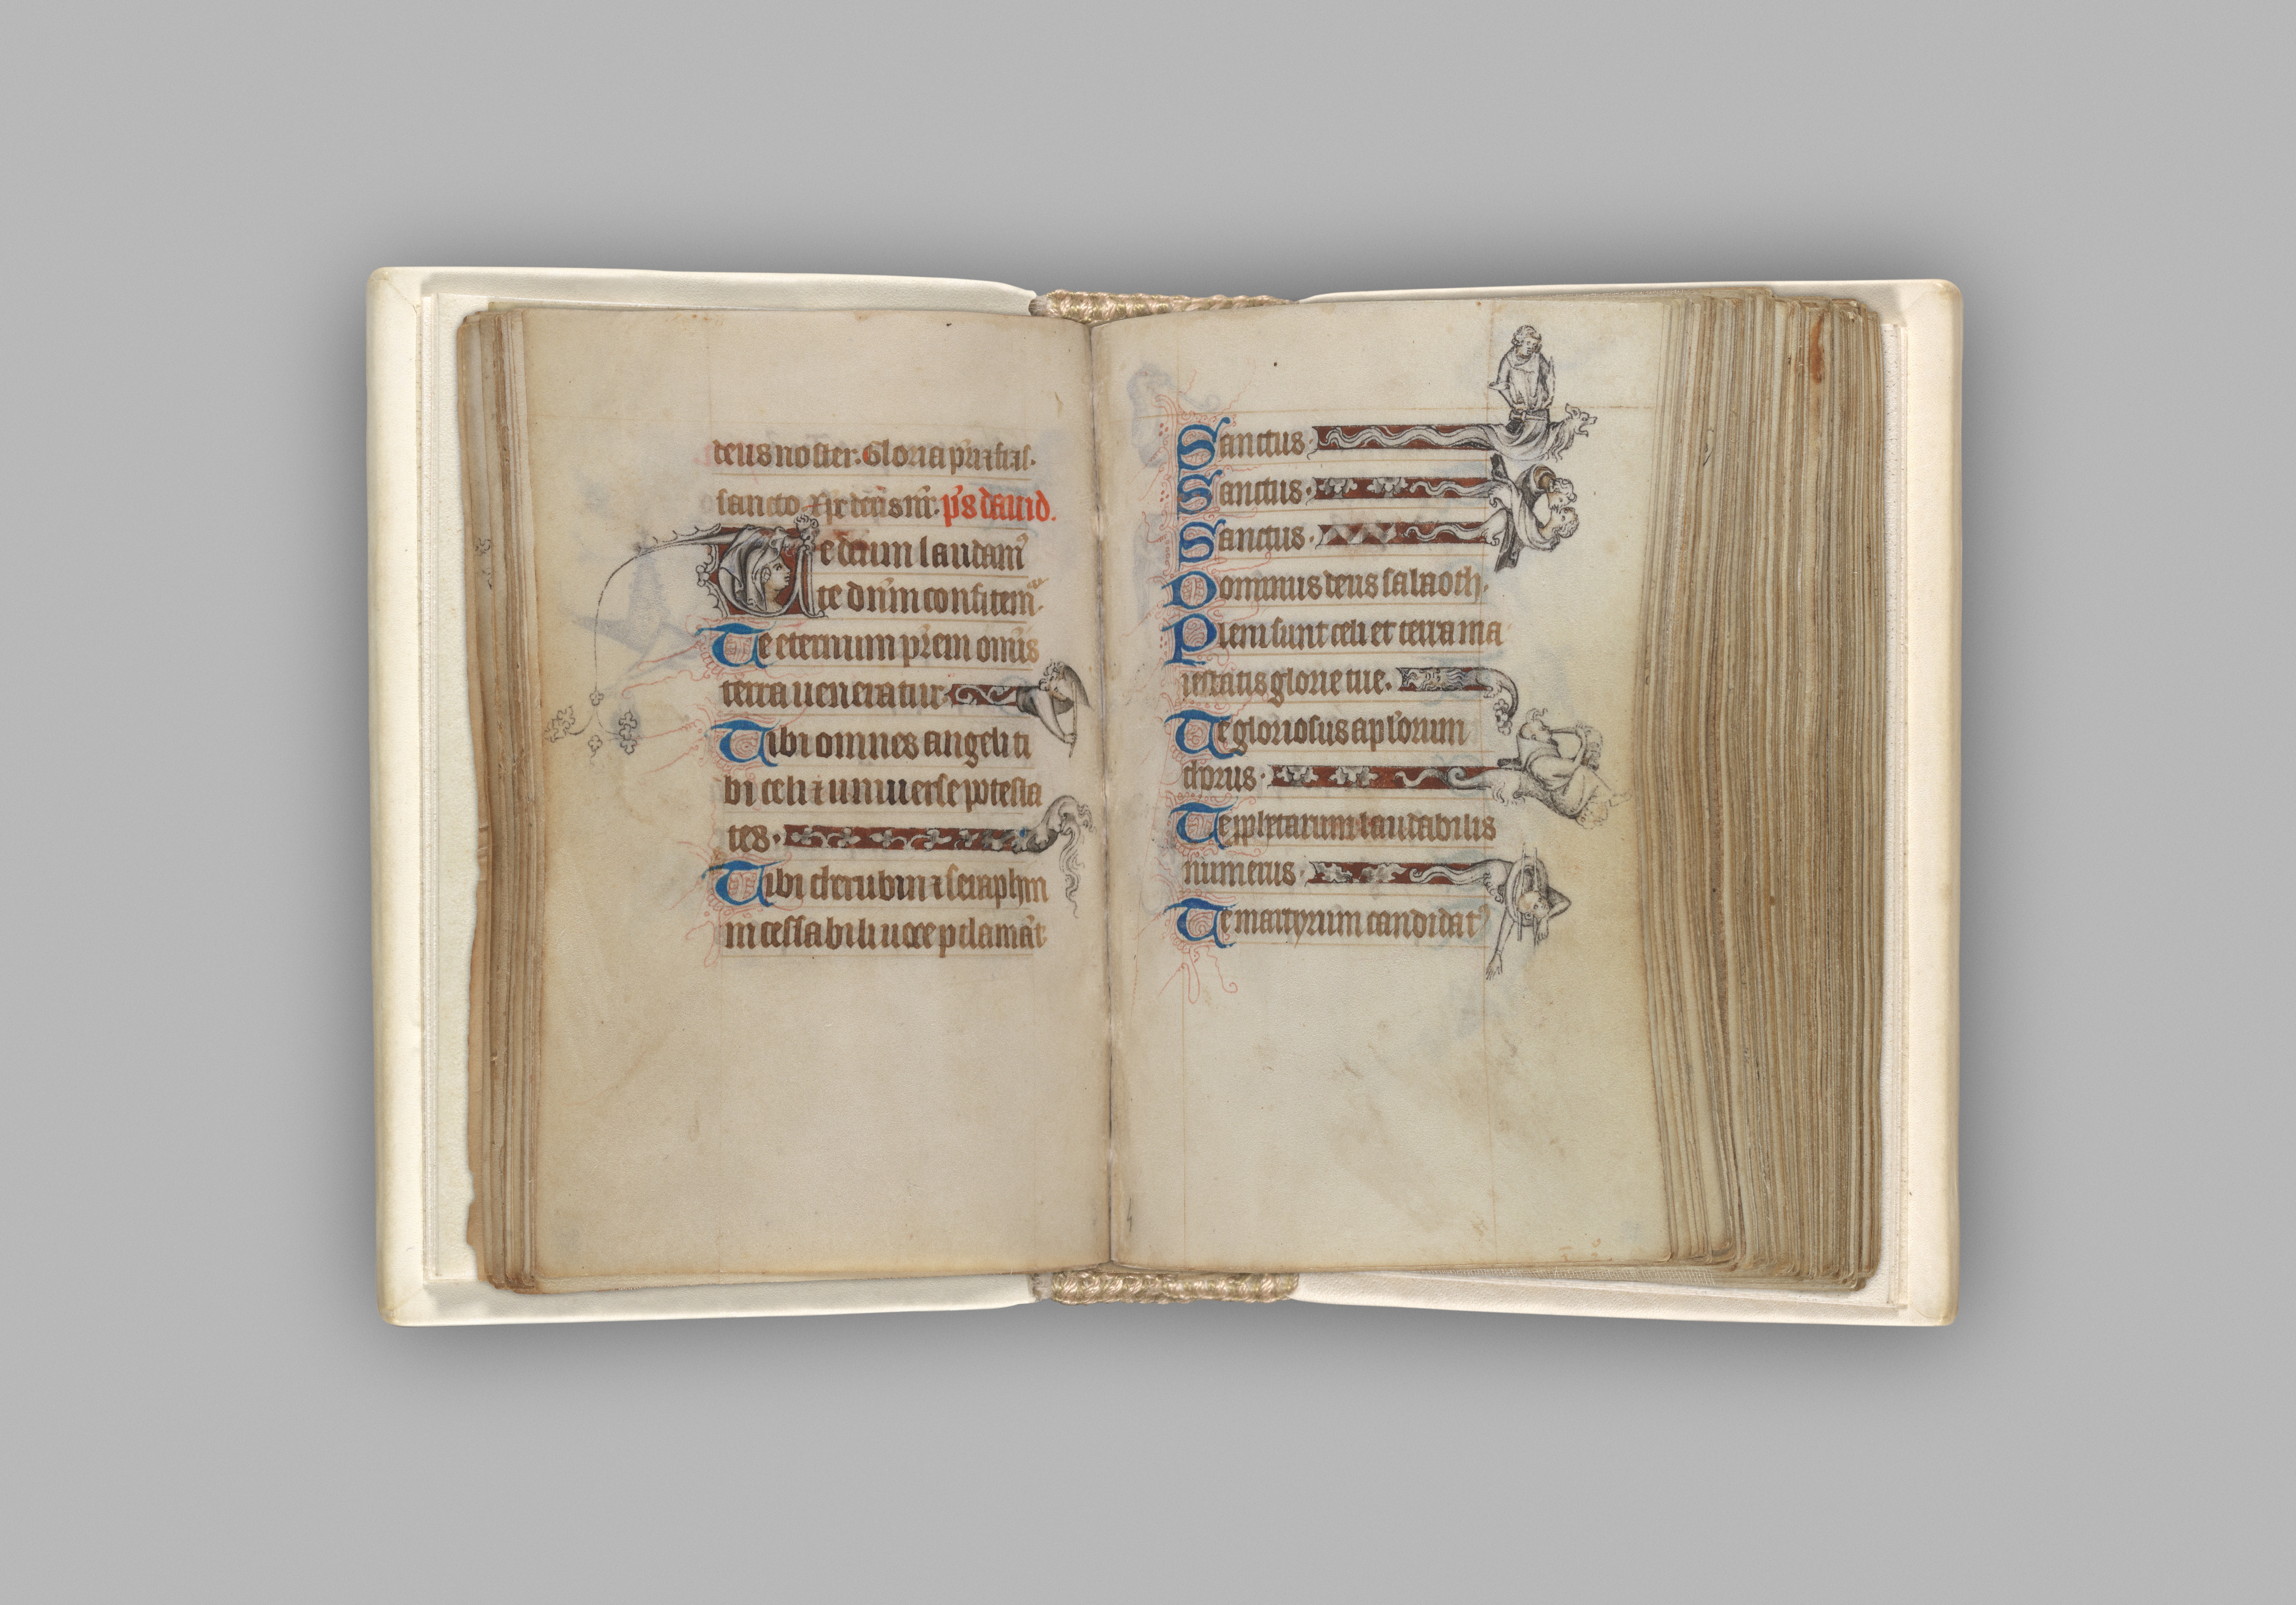 deus noster. Gloria pr̄i ⁊ fil'.
sancto. Xp̄e deus nr̄. ps̄ dauid.
Te deum laudam⁹
te dn̄m confitem̄ᵘʳ.
Te eternum pr̄em omīs
terra ueneratur.
Tibi omnes angeli ti
bi celi ⁊ uniuerse potesta
tes.
Tibi cherubin ⁊ seraphin
incessabili uoce pclamāt
Sanctus.
Sanctus.
Sanctus.
Dominus deus sabaoth.
Pleni sunt celi et terra ma
iestatis glorie tue.
Te gloriosus apl'orum
chorus.
Te ꝓphetarum laudabilis
numerus.
Te martyrum candidat⁹